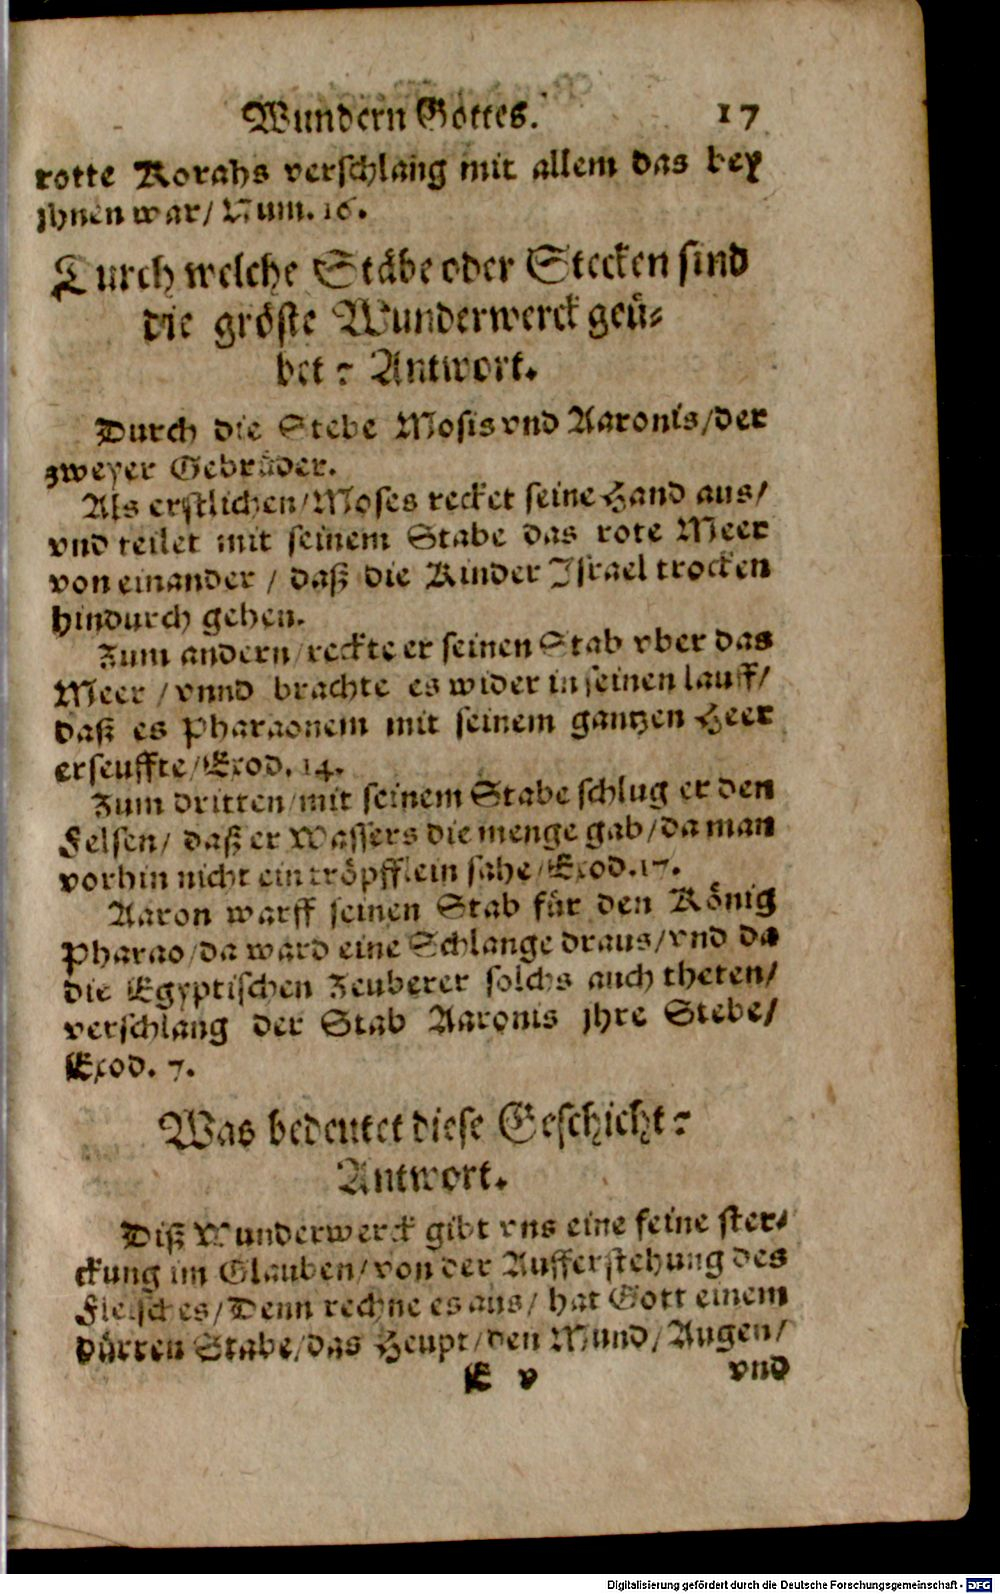 Wundern Gottes. 17
rotte Korahs verschlang mit allem das bey
jhnen war/ Num. 16.
Durch welche Stäbe oder Stecken sind
die gröste Wunderwerck geü-
bet? Antwort.
Durch die Stebe Mosis vnd Aaronis/der
zweyer Gebrüder.
Als erstlichen/Moses recket seine Hand aus/
vnd teilet mit seinem Stabe das rote Meer
von einander / daß die Kinder Israel trocken
hindurch gehen.
Zum andern/reckte er seinen Stab vber das
Meer /vnnd brachte es wider in seinen lauff/
daß es Pharaonem mit seinem gantzen Heer
erseuffte/Exod. 14.
Zum dritten/mit seinem Stabe schlug er den
Felsen/ daß er Wassers die menge gab/da man
vorhin nicht ein tröpfflein sahe/Exod.17.
Aaron warff seinen Stab für den König
Pharao/da ward eine Schlange draus/vnd da
die Egyptischen Zeuberer solchs auch theten/
verschlang der Stab Aaronis jhre Stebe/
Exod. 7.
Was bedeutet diese Geschicht?
Antwort.
Diß Wunderwerck gibt vns eine feine ster-
ckung im Glauben/von der Aufferstehung des
Fleisches/Denn rechne es aus/ hat Gott einem
dürren Stabe/das Heupt/den Mund/Augen/
E v vnd
Digitalisierung gefördert durch die Deutsche Forschungsgemeinschaft - DFG